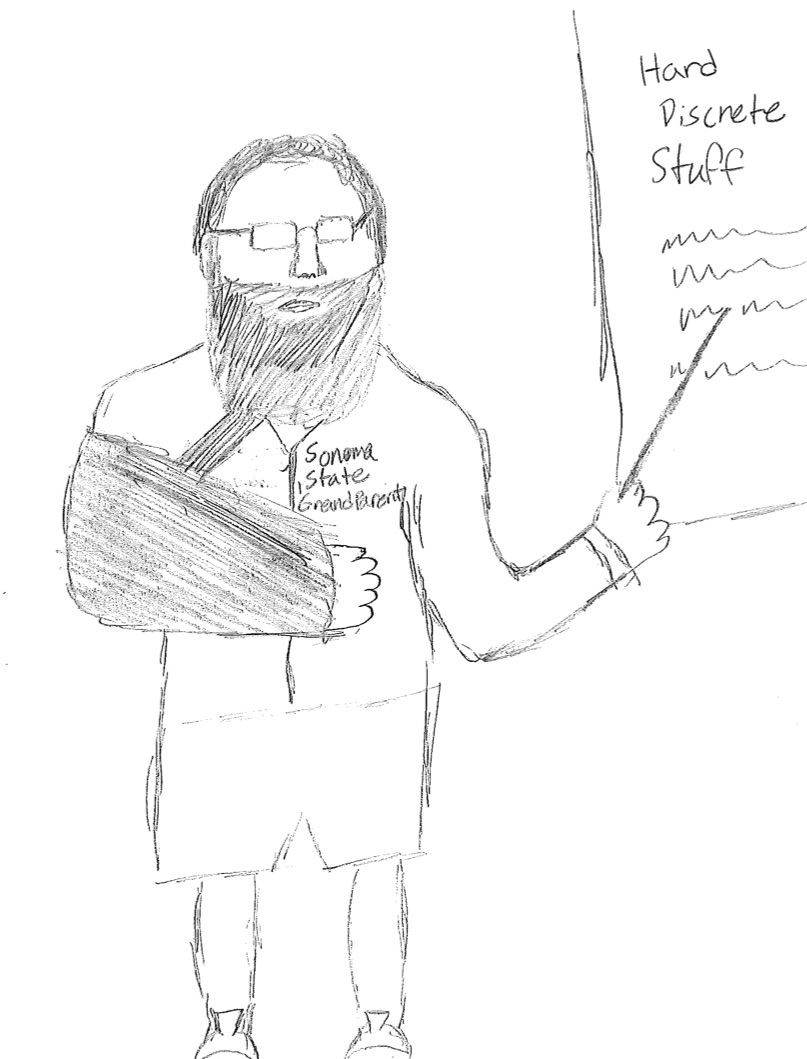 Hard
Discrete
Stuff
Sonoma
State
GrandParent